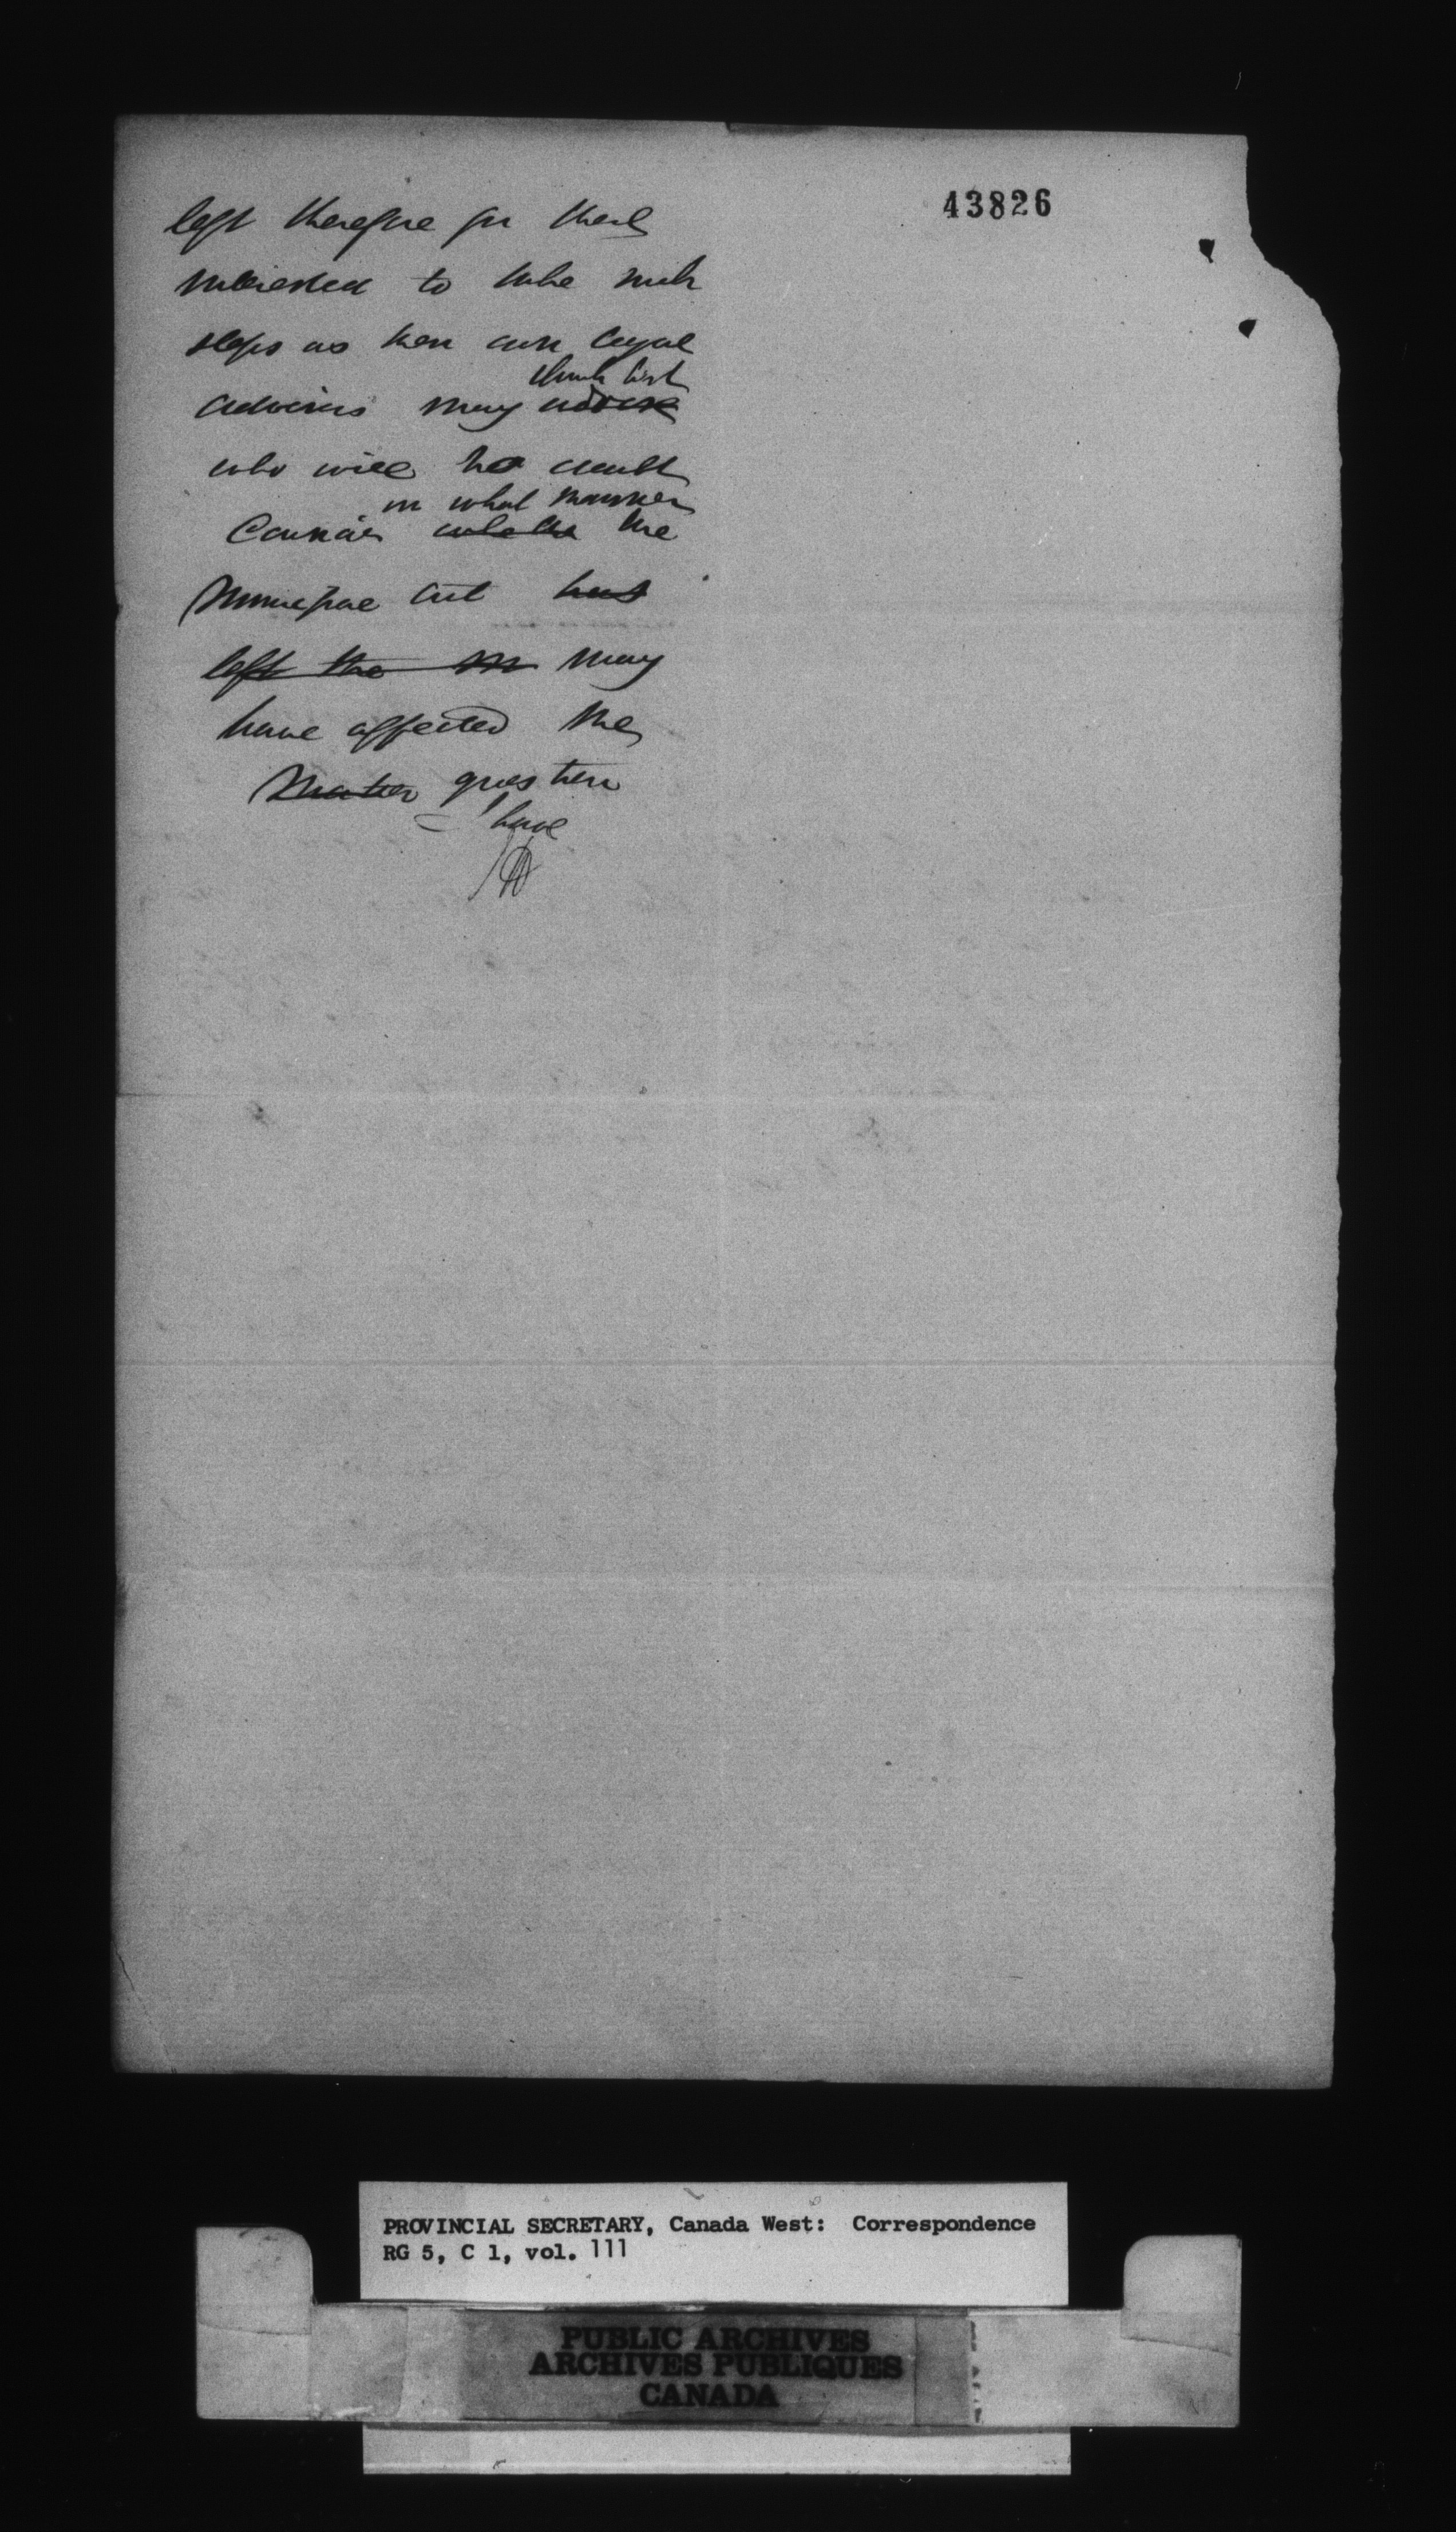 43826
left therefore for those
interested to take such
steps as their own legal
think best
advisers may advise
who will no doubt
in what manner
Consider whether the
Municipal Act has
left the M may
have affected the
Matter question
I have
PROVINCIAL SECRETARY, Canada West: Correspondence
RG 5, C 1, vol. 111
PUBLIC ARCHIVES
ARCHIVES PUBLIQUES
CANADA